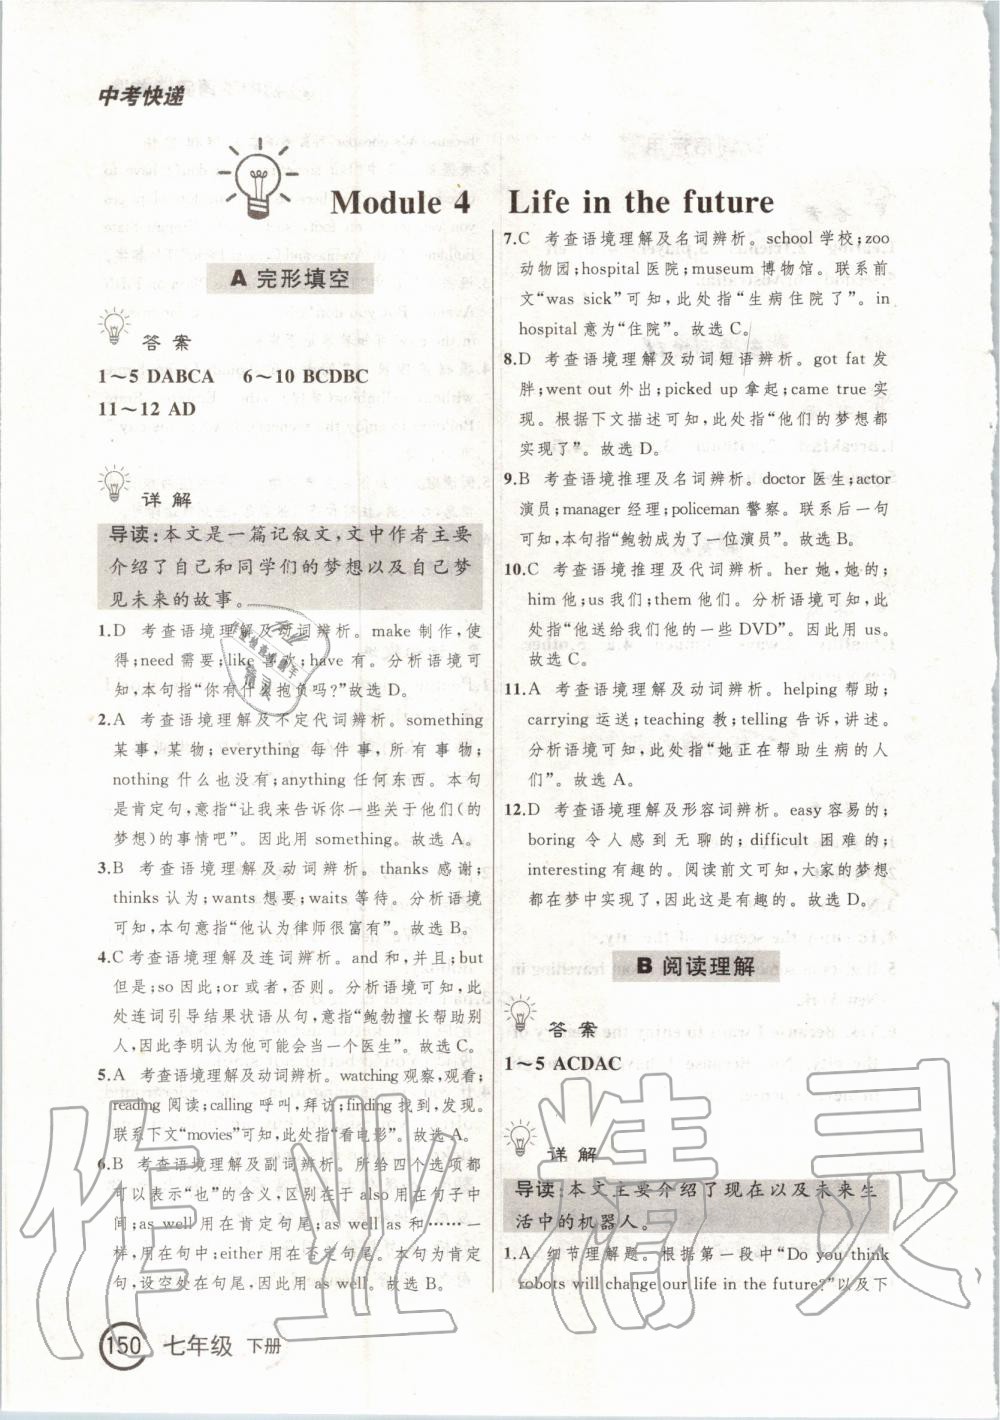 中考快递
Module 4 Life in the future
A 完形填空
答案
1～5 DABCA 6～10 BCDBC
11～12 AD
详解
导读:本文是一篇记叙文,文中作者主要
介绍了自己和同学们的梦想以及自己梦
见未来的故事。
1.D 考查语境理解及动词辨析。make 制作,使
得;need 需要;like 喜欢;have 有。分析语境可
知,本句指“你有什么抱负吗?”故选 D。
2.A 考查语境理解及不定代词辨析。something
某事,某物;everything 每件事,所有事物;
nothing 什么也没有;anything 任何东西。本句
是肯定句,意指“让我来告诉你一些关于他们(的
梦想)的事情吧”。因此用 something。故选 A。
3.B 考查语境理解及动词辨析。thanks 感谢;
thinks 认为;wants 想要;waits 等待。分析语境可
知,本句意指“他认为律师很富有”。故选 B。
4.C 考查语境理解及连词辨析。and 并且;but
但是;so 因此;or 或者,否则。分析语境可知,此
处连词引导结果状语从句,意指“鲍勃擅长帮助别
人,因此李明认为他可能会当一个医生”。故选 C。
5.A 考查语境理解及动词辨析。watching 观察,观看;
reading 阅读;calling 呼叫,拜访;finding 找到,发现。
联系下文“movies”可知,此处指“看电影”。故选 A。
6.B 考查语境理解及副词辨析。所给四个选项都
可以表示“也”的含义,区别在于 also 用在句子中
间;as well 用在肯定句尾;as well 和……一
样,用在句中;either 用在否定句尾。本句为肯定
句,设空处在句尾,因此用 as well。故选 B。
7.C 考查语境理解及名词辨析。school 学校;zoo
动物园;hospital 医院;museum 博物馆。联系前
文“was sick”可知,此处指“生病住院了”。in
hospital 意为“住院”。故选 C。
8.D 考查语境理解及动词短语辨析。got fat 发
胖;went out 外出;picked up 拿起;came true 实
现。根据下文描述可知,此处指“他们的梦想都
实现了”。故选 D。
9.B 考查语境推理及名词辨析。doctor 医生;actor
演员;manager 经理;policeman 警察。联系后一句
可知,本句指“鲍勃成为了一位演员”。故选 B。
10.C 考查语境推理及代词辨析。her 她,她的;
him 他;us 我们;them 他们。分析语境可知,此
处指“他送给我们他的一些 DVD”。因此用 us。
故选 C。
11.A 考查语境理解及动词辨析。helping 帮助;
carrying 运送;teaching 教;telling 告诉,讲述。
分析语境可知,此处指“她正在帮助生病的人
们”。故选 A。
12.D 考查语境理解及形容词辨析。easy 容易的;
boring 令人感到无聊的;difficult 困难的;
interesting 有趣的。阅读前文可知,大家的梦想
都在梦中实现了,因此这是有趣的。故选 D。
B 阅读理解
答案
1～5 ACDAC
详解
导读:本文主要介绍了现在以及未来生
活中的机器人。
1.A 细节理解题。根据第一段中“Do you think
robots will change our life in the future?”以及下
150 七年级 下册
作业精灵